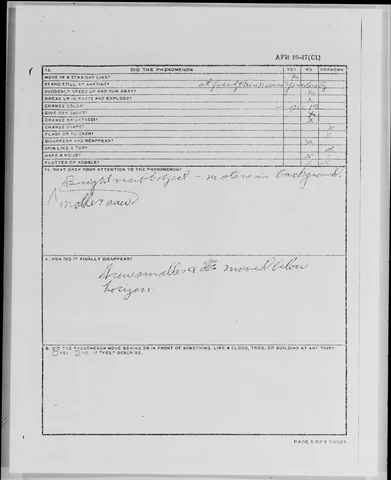 AFR 80-17(C1)
12. DID THE PHENOMENON YES NO UNKNOWN
MOVE IN A STRAIGHT LINE? X
STAND STILL AT ANYTIME? at first then moved
SUDDENLY SPEED UP AND RUN AWAY? X
BREAK UP IN PARTS AND EXPLODE? X
CHANGE COLOR?
GIVE OFF SMOKE? X
CHANGE BRIGHTNESS? X
CHANGE SHAPE? X
FLASH OR FLICKER? X
DISAPPEAR AND REAPPEAR? X
SPIN LIKE A TOP?
MAKE A NOISE? X
FLUTTER OR WOBBLE? X
13. WHAT DREW YOUR ATTENTION TO THE PHENOMENON?
Bright object – no stars in background.
Mother saw
A. HOW DID IT FINALLY DISAPPEAR?
Grew smaller & moved below
horizon
B. DID THE PHENOMENON MOVE BEHIND OR IN FRONT OF SOMETHING, LIKE A CLOUD, TREE, OR BUILDING AT ANY TIME?
YES NO. IF "YES," DESCRIBE.
PAGE 5 OF 9 PAGES